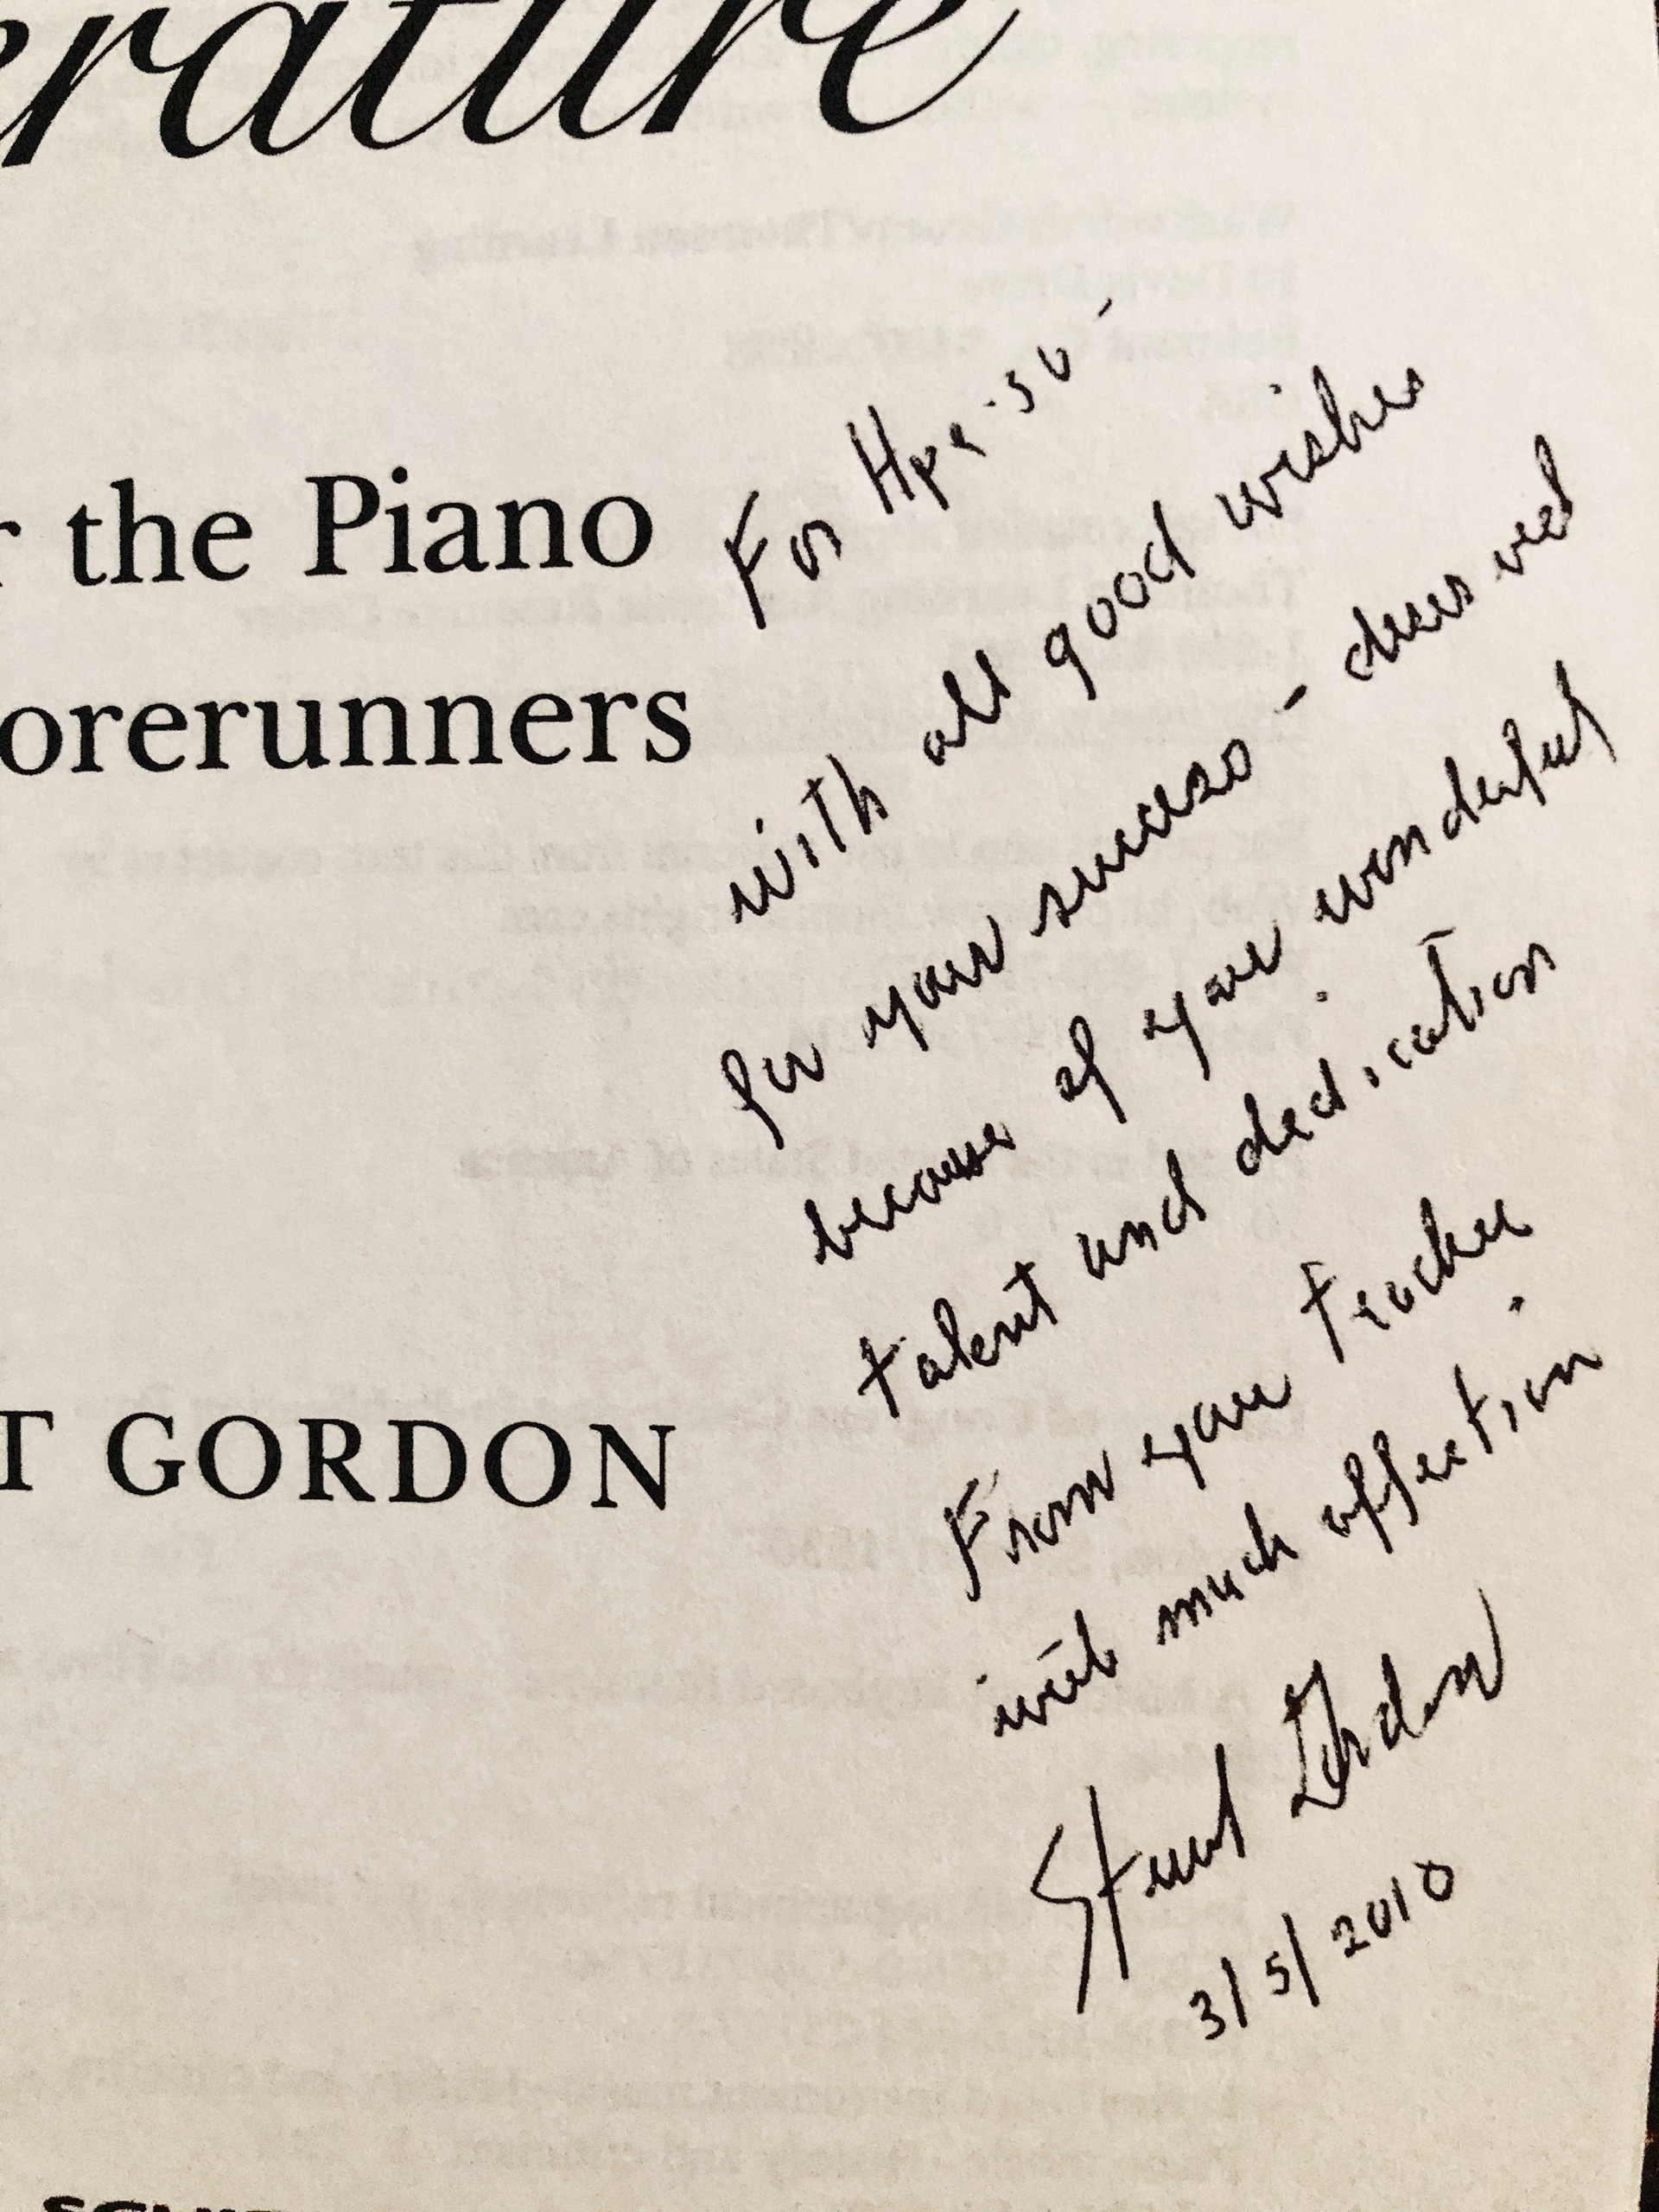 erature
r the Piano
orerunners
T GORDON
For
with all good wishes
for your success - deserved
because of your wonderful
talent and dedication.
From your teacher
with much affection.
Stewart Gordon
3/5/2010